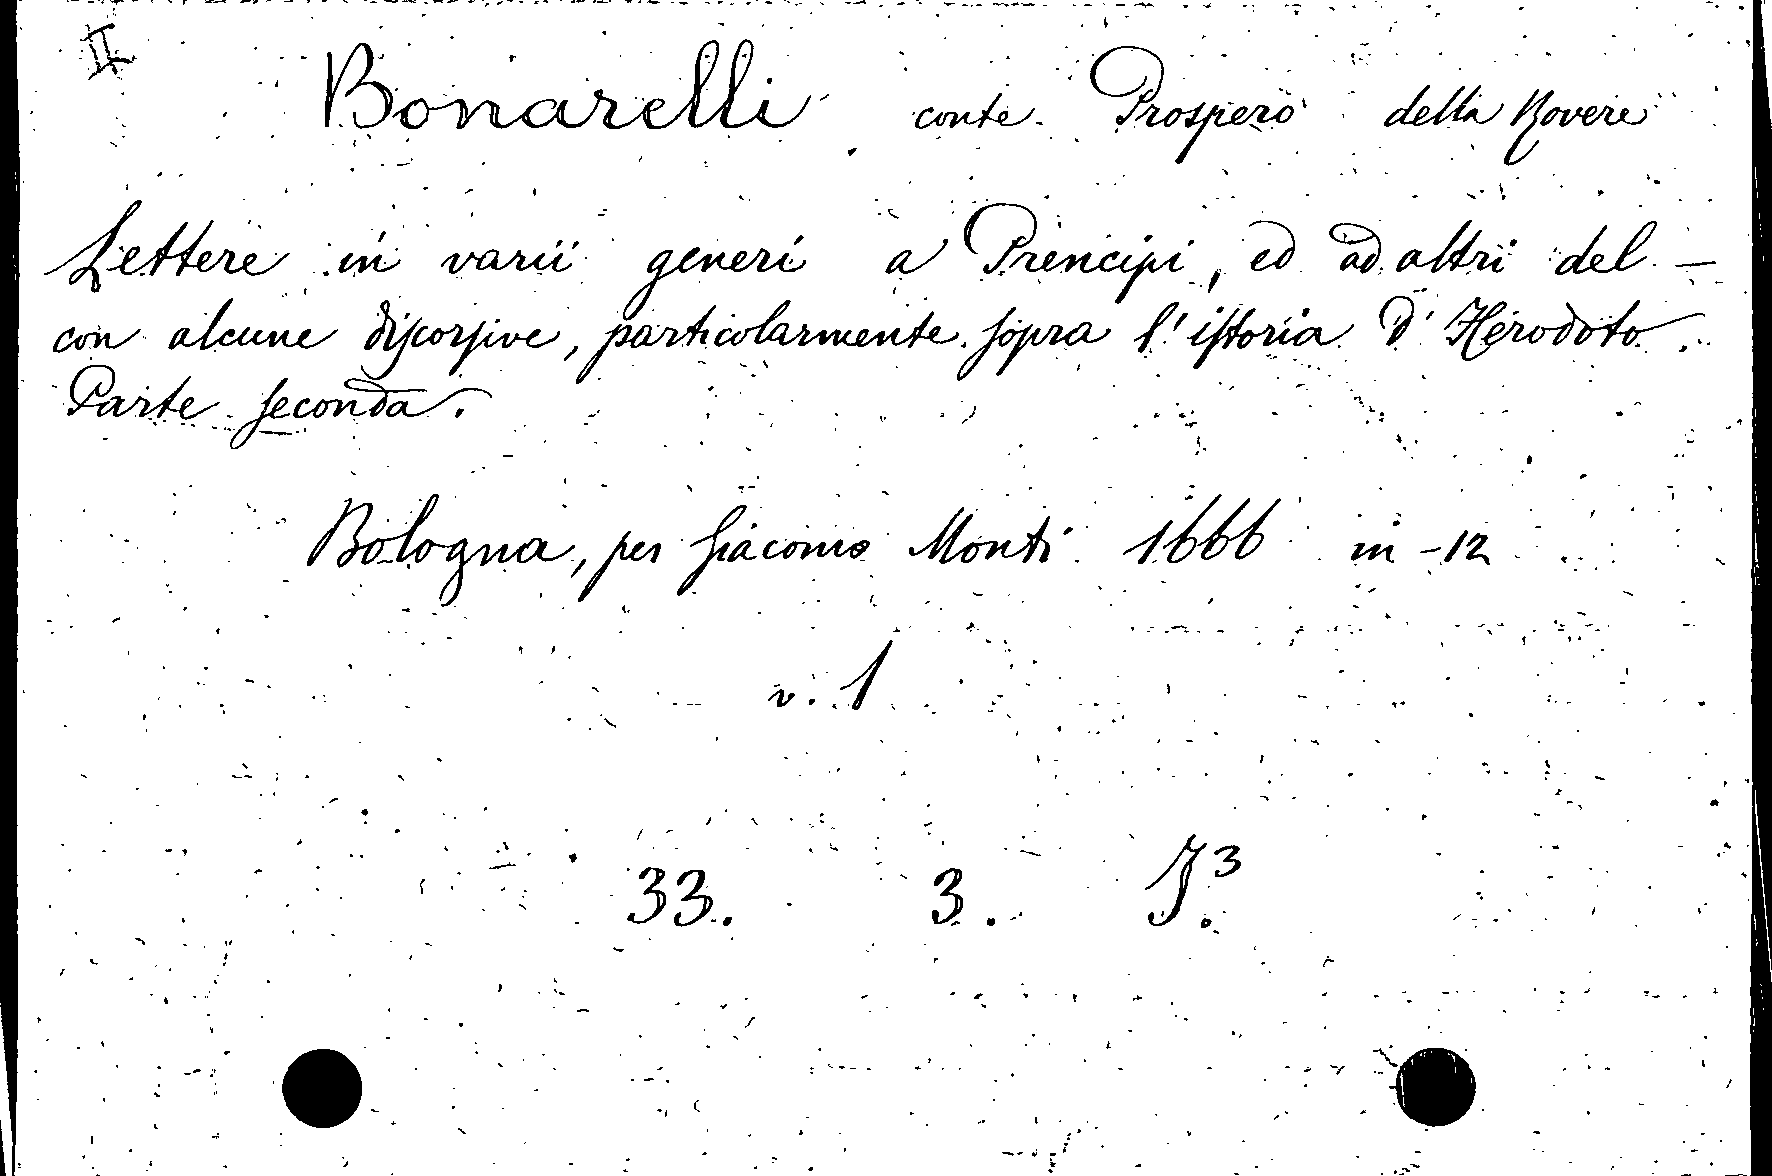 II
Bonarelli conte Prospero della Rovere
Lettere in varii generi a Prencipi, ed ad altri del —
con alcune discorsive, particolarmente sopra l'istoria d'Herodoto.
Parte seconda.
Bologna, per Giacomo Monti 1666 in -12
v. 1
33. 3. J.3